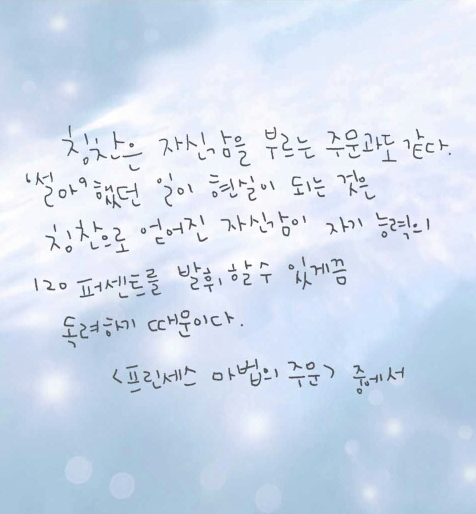 칭찬은 자신감을 부르는 주문과도 같다.
'설마' 했던 일이 현실이 되는 것은
칭찬으로 얻어진 자신감이 자기 능력의
120 퍼센트를 발휘할 수 있게끔
독려하기 때문이다.
<프린세스 마법의 주문> 중에서